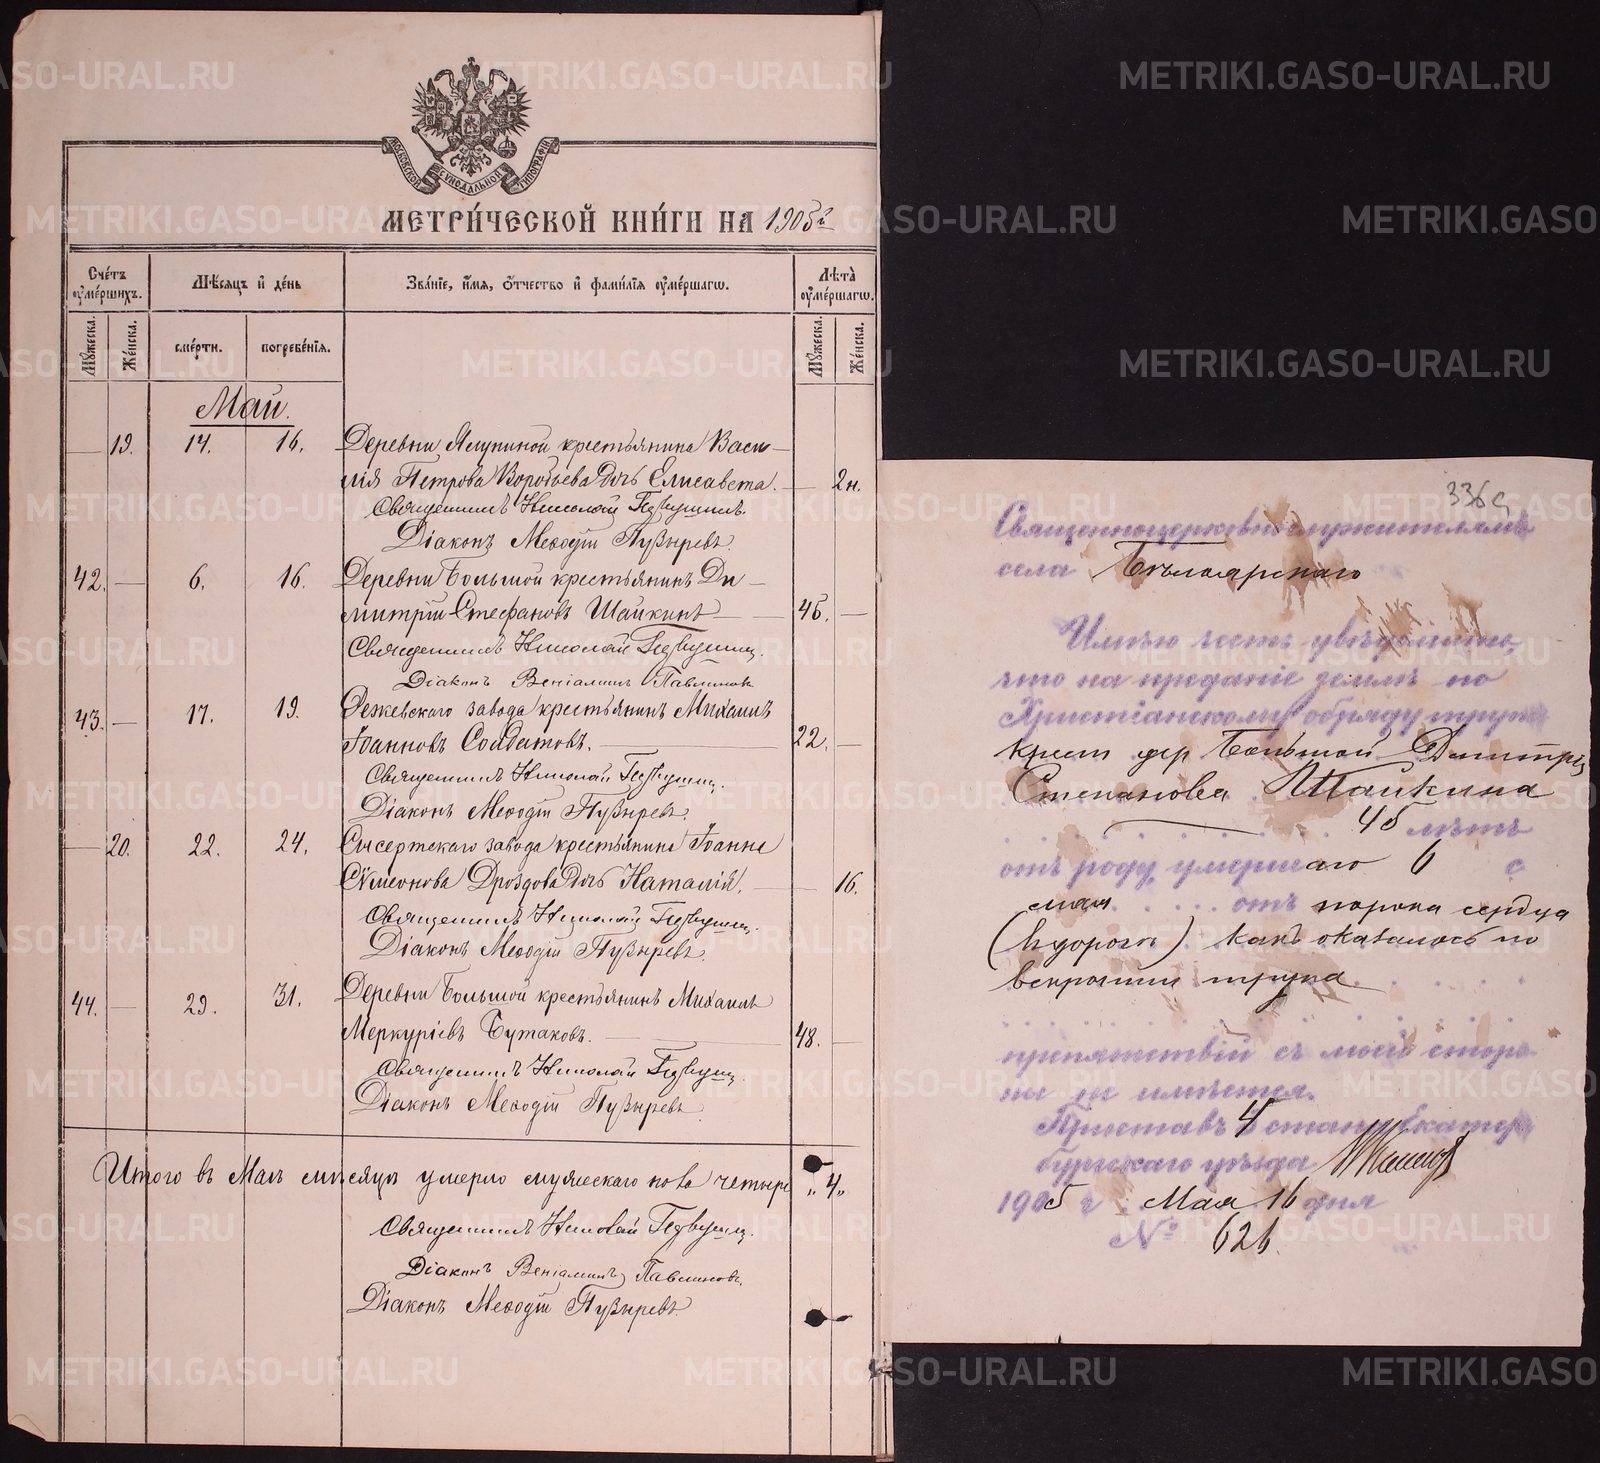 METRIKI.GASO-URAL.RU
МОСКОВСКОЙ СѴНОДАЛЬНОЙ ТИПОГРАФІИ
МЕТРИ́ЧЕСКОЙ КНИ́ГИ НА 1905 г.
Сче́тъ ᲂумершихъ.
Мѣсяцъ и де́нь
Зва́ніе, и́мя, ѻ́тчество и фами́лія ᲂуме́ршагѡ.
Лѣта̀ ᲂуме́ршагѡ.
Мꙋжеска.
Же́нска.
сме́рти.
погребе́нія.
Мꙋжеска.
Же́нска.
Май.
— 19. 14. 16. Деревни крестьянина Васи-
лія Петрова Воробьева дочь Елисавета. — 2 н.
Священникъ Николай
Діаконъ Меѳодій Пузыревъ.
42. — 6. 16. Деревни Большой крестьянинъ Ди-
митрій Стефановъ Шайкинъ — 45. —
Священникъ Николай
Діаконъ Веніаминъ Павлиновъ
43. — 17. 19. Режевскаго завода крестьянинъ Михаилъ
Іоанновъ Солдатовъ. — 22. —
Священникъ Николай
Діаконъ Меѳодій Пузыревъ.
— 20. 22. 24. Сысертскаго завода крестьянина Іоанна
Сѵмеонова Дроздова дочь Наталія. — 16.
Священникъ Николай
Діаконъ Меѳодій Пузыревъ.
44. — 29. 31. Деревни Большой крестьянинъ Михаилъ
Меркуріевъ Бутаковъ. — 48. —
Священникъ Николай
Діаконъ Меѳодій Пузыревъ
Итого въ Маѣ мѣсяцѣ умерло мужескаго пола четыре „ 4 „
Священникъ Николай
Діаконъ Веніаминъ Павлиновъ
Діаконъ Меѳодій Пузыревъ
336
Священноцерковнослужителямъ
села Бѣлоярскаго
Имѣю честь увѣдомить,
что на преданіе землѣ по
Христіанскому обряду трупа
крест. дер Большой Дмитрія
Степанова Шайкина
45 лѣтъ
отъ роду умершаго 6 с
мая отъ порока сердца
какъ оказалось по
вскрытіи трупа
препятствій съ моей сторо-
ны не имѣется.
Приставъ 4 стана Екатерин
бургскаго уѣзда
1905 г. Мая 16 дня
№ 626.